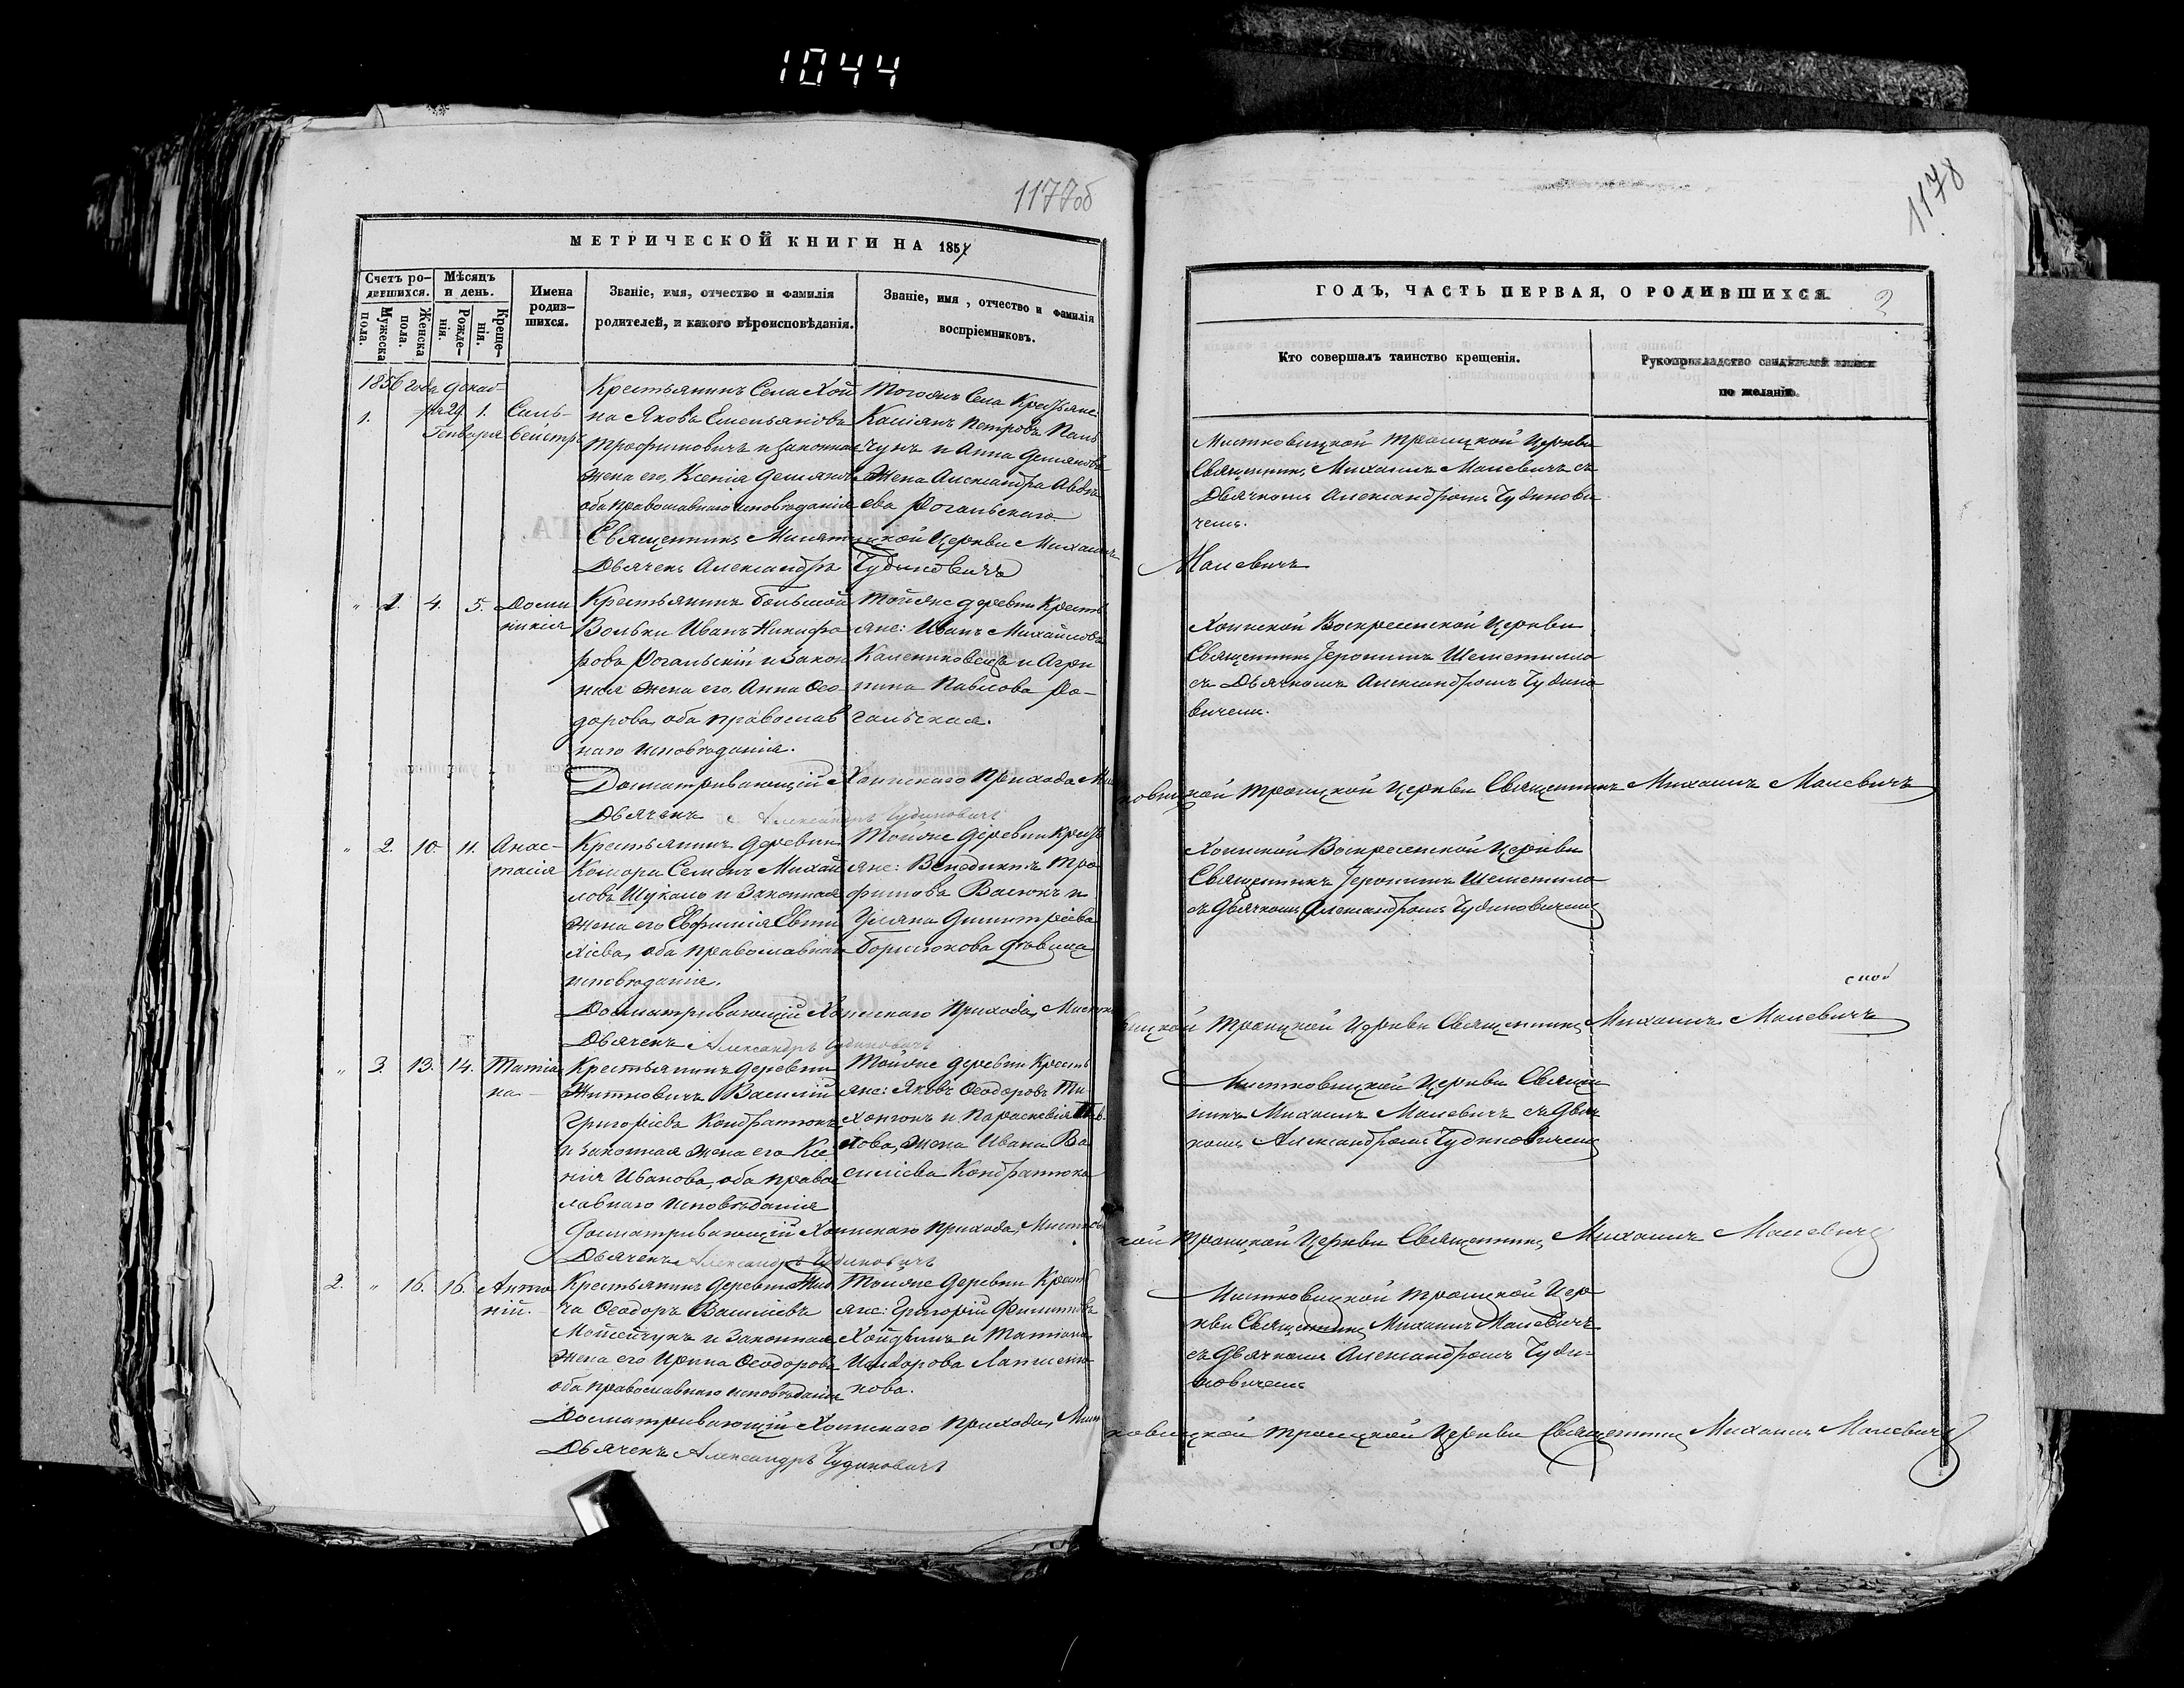 1044
1177об
МЕТРИЧЕСКОЙ КНИГИ НА 1857
Счетъ ро-
дившихся.
Мѣсяцъ
и день.
Мужеска
пола.
Женска
пола.
Рожде-
нія.
Креще-
нія.
Имена
родив-
шихся.
Званіе, имя, отчество и фамилія
родителей, и какого вѣроисповѣданія.
Званіе, имя, отчество и фамилія
воспріемниковъ.
1856 года декаб-
1.
ря 29. 1.
Генваря
Силь-
вейстръ
Крестьянинъ Села Хой
на Яковъ Емельяновъ
Трофимовичъ и законная
жена его, Ксенія Демянова
оба православнаго исповѣданія
Тогожъ Села Крестьяне:
Касіянъ Петровъ
и Анна Демянова
Жена Александра
Рогальскаго
Священникъ
Церкви Михаилъ
Дьячекъ Александръ Чудиновичъ
" 1. 4. 5.
Доми
никія
Крестьянинъ Большой
Вольки Иванъ Никифо
ровъ Рогальскій и Закон
ная жена его Анна Ѳео
дорова, оба православ
наго исповѣданія.
Тойже деревни Кресть
яне: Иванъ Михайловъ
и Агри
пина Павлова Ро-
гальская.
Досматривающій Хоинскаго Прихода
Дьячекъ Александръ Чудиновичъ
" 2. 10. 11.
Анас-
тасія
Крестьянинъ деревни
Комора Семенъ Михай
ловъ Шукало и Законная
Жена его Евфимія Евти
хіева, оба православнаго
исповѣданія.
Тойже деревни Кресть
яне: Венедиктъ Тро
фимовъ Васюкъ и
Уляна Димитріева
Борисюкова дѣвица
Досматривающій Хоинскаго Прихода,
Дьячекъ Александръ Чудиновичъ
" 3. 13. 14.
Татіа
на
Крестьянинъ деревни
Житновичъ Василій
Григоріевъ Кондратюкъ
и законная жена его Ксе
нія Иванова, оба право
славнаго исповѣданія
Тойже деревни Кресть
яне: Яковъ Ѳеодоровъ Ти
хончокъ и Параскевія
жена Ивана Ва
силіева Кондратюка
Досматривающій Хоинскаго прихода,
Дьячекъ Александръ Чудиновичъ
2. " 16. 16.
Анто
ній.
Крестьянинъ деревни
Ѳеодоръ Васильевъ
Мойсейчукъ и Законная
Жена его Ирина Ѳеодорова
оба православнаго исповѣданія
Тойже деревни Кресть
яне: Григорій Филиповъ
и Татіана
нова.
Досматривающій Хоинскаго прихода,
Дьячекъ Александръ Чудиновичъ
1178
ГОДЪ, ЧАСТЬ ПЕРВАЯ, О РОДИВШИХСЯ.
2
Кто совершалъ таинство крещенія.
Рукоприкладство свидѣтелей записи
по желанію.
Троицкой Церкви
Священникъ Михаилъ Малевичъ съ
Дьячкомъ Александромъ Чудинови
чемъ.
Малевичъ
Хоинской Воскресенской Церкви
Священникъ Іеронимъ Шеметилло
съ Дьячкомъ Александромъ Чудино
вичемъ.
Троицкой Церкви Священникъ Михаилъ Малевичъ
Хоинской Воскресенской Церкви
Священникъ Іеронимъ Шеметило
съ Дьячкомъ Александромъ Чудиновичемъ
ской
Троицкой Церкви Священникъ Михаилъ Малевичъ
Церкви Священ
никъ Михаилъ Малевичъ съ Дьяч
комъ Александромъ Чудиновичемъ
Троицкой Церкви Священникъ Михаилъ Малевичъ
Троицкой Цер
кви Священникъ Михаилъ Малевичъ
съ Дьячкомъ Александромъ Чуди-
новичемъ
Троицкой Церкви Священникъ Михаилъ Малевичъ